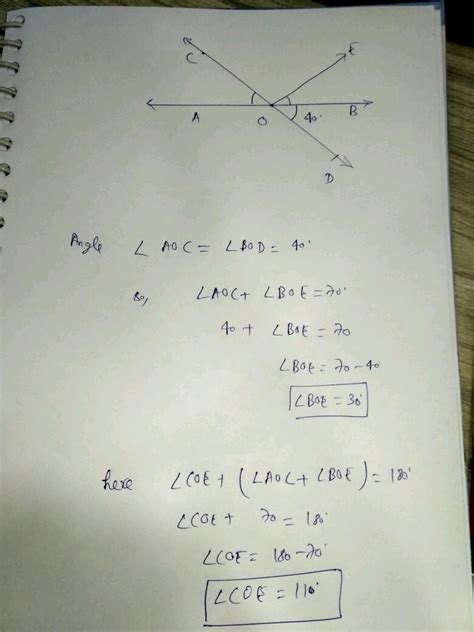 C
E
A
O
40°
B
D
Angle ∠AOC = ∠BOD = 40°
So, ∠AOC + ∠BOE = 70°
40 + ∠BOE = 70
∠BOE = 70 - 40
∠BOE = 30°
here ∠COE + (∠AOC + ∠BOE) = 180°
∠COE + 70 = 180°
∠COE = 180 - 70°
∠COE = 110°